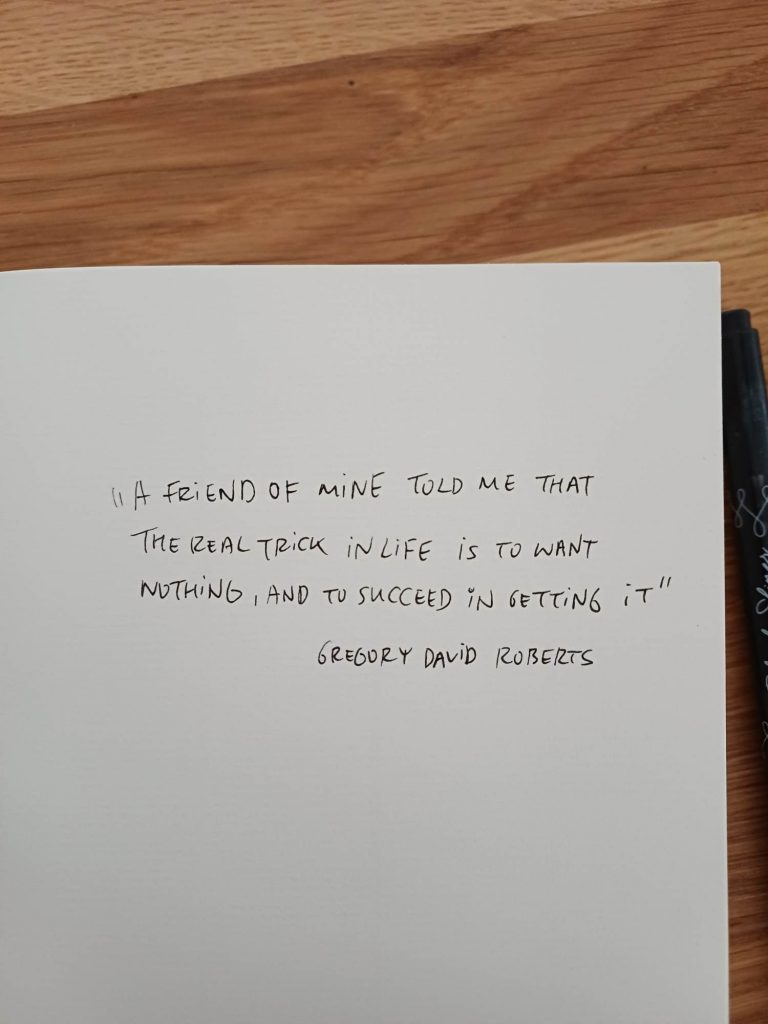 "A FRiEND OF MiNE TOLD ME THAT
THE REAL TRiCK iN LiFE iS TO WANT
NOTHiNG, AND TO SUCCEED iN GETTiNG iT"
GREGORY DAViD ROBERTS